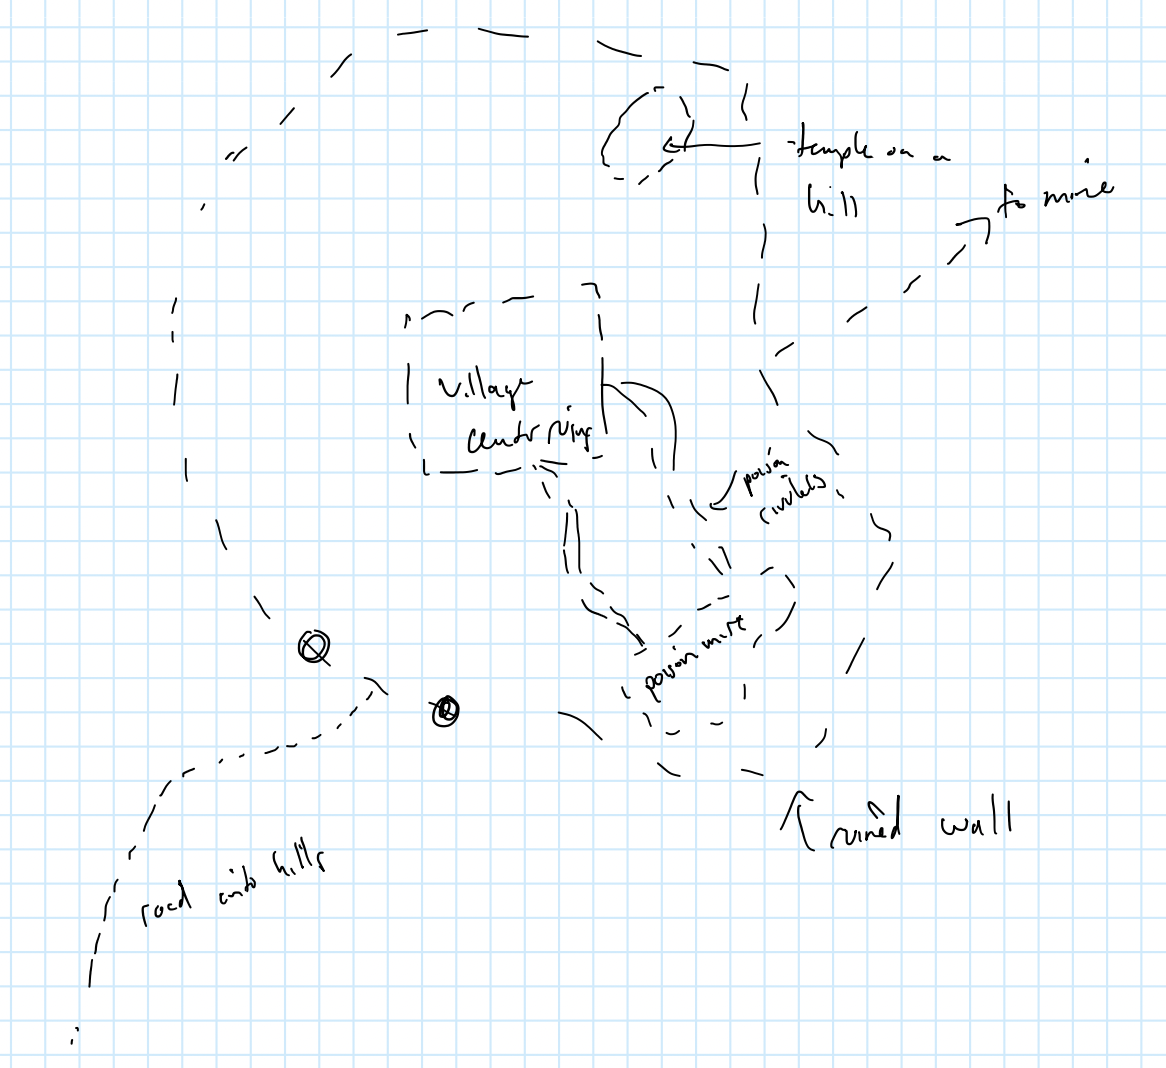 temple on a
hill
to mine
Village
center ruins
poison
rivulets
poison mist
ruined wall
road into hills